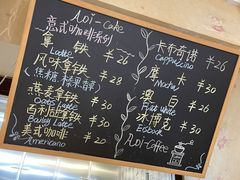 Aoi-Cake
意式咖啡系列
拿铁 ¥26
Latte
风味拿铁 ¥28
(焦糖、榛果、香草)
燕麦拿铁 ¥30
Oats Latte
百利甜拿铁 ¥30
Bailey Latte
美式咖啡 ¥20
Americano
卡布奇诺 ¥26
Cappuccino
摩卡 ¥30
Mocha
澳白 ¥26
Flat white
冰博克 ¥30
Eisbock
Aoi-Coffee